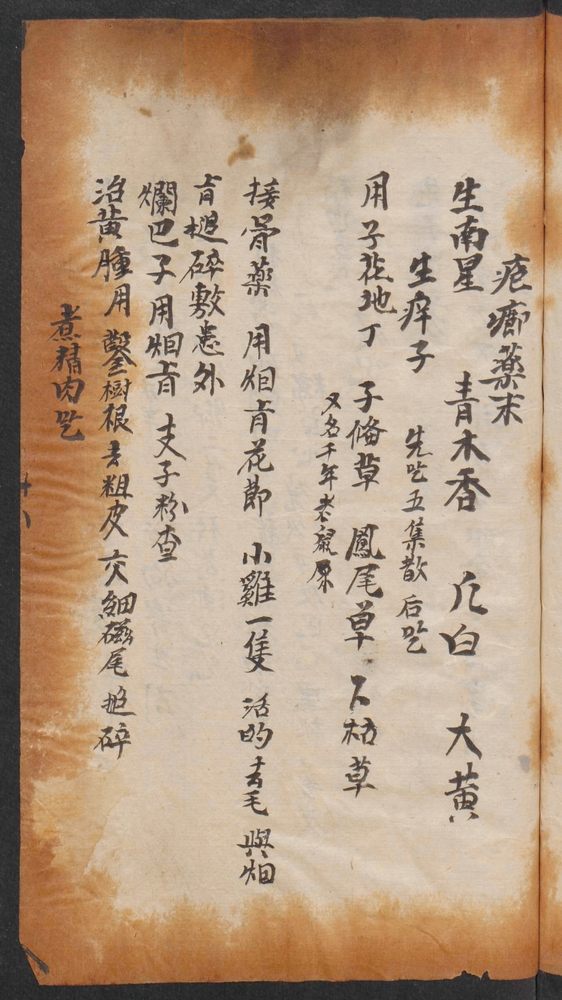 疤癤藥末
生南星 青木香 大黄
生痒子 先吃五集散 后吃
用子花地丁 子俻草 鳳尾草 下枯草
又名千年老鼠屎
接骨藥 用烟骨花節 小雞一隻 活的去毛 與烟
骨搥碎敷患外
爛巴子用烟骨 夫子粉查
治黄腫用 樹根去粗皮 交細磁尾 碎
煮精肉吃